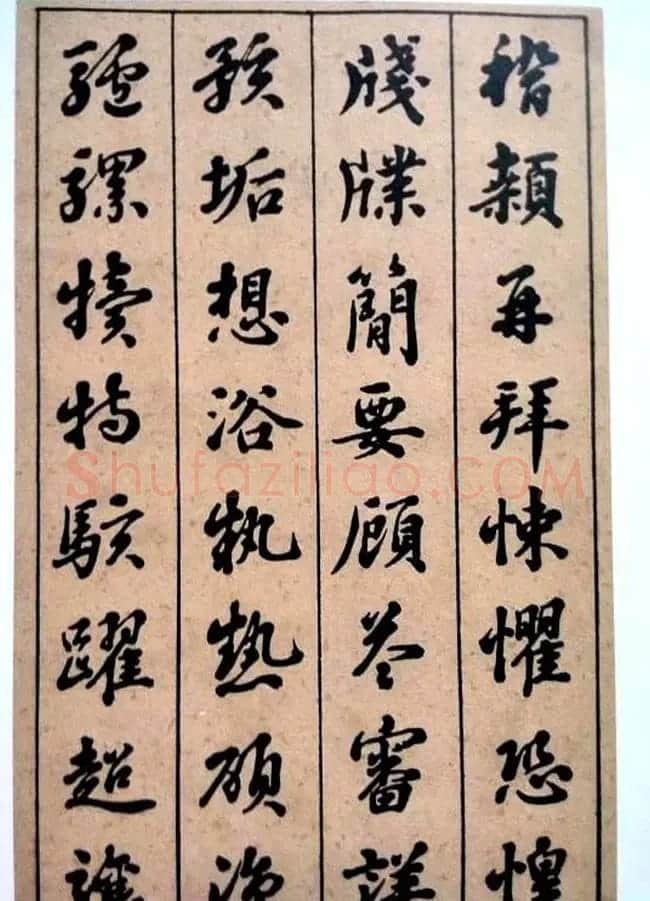 稽顙再拜悚懼恐惶
牋牒簡要顧答審詳
骸垢想浴執熱願涼
驢騾犢特駭躍超驤
Shufaziliao.COM